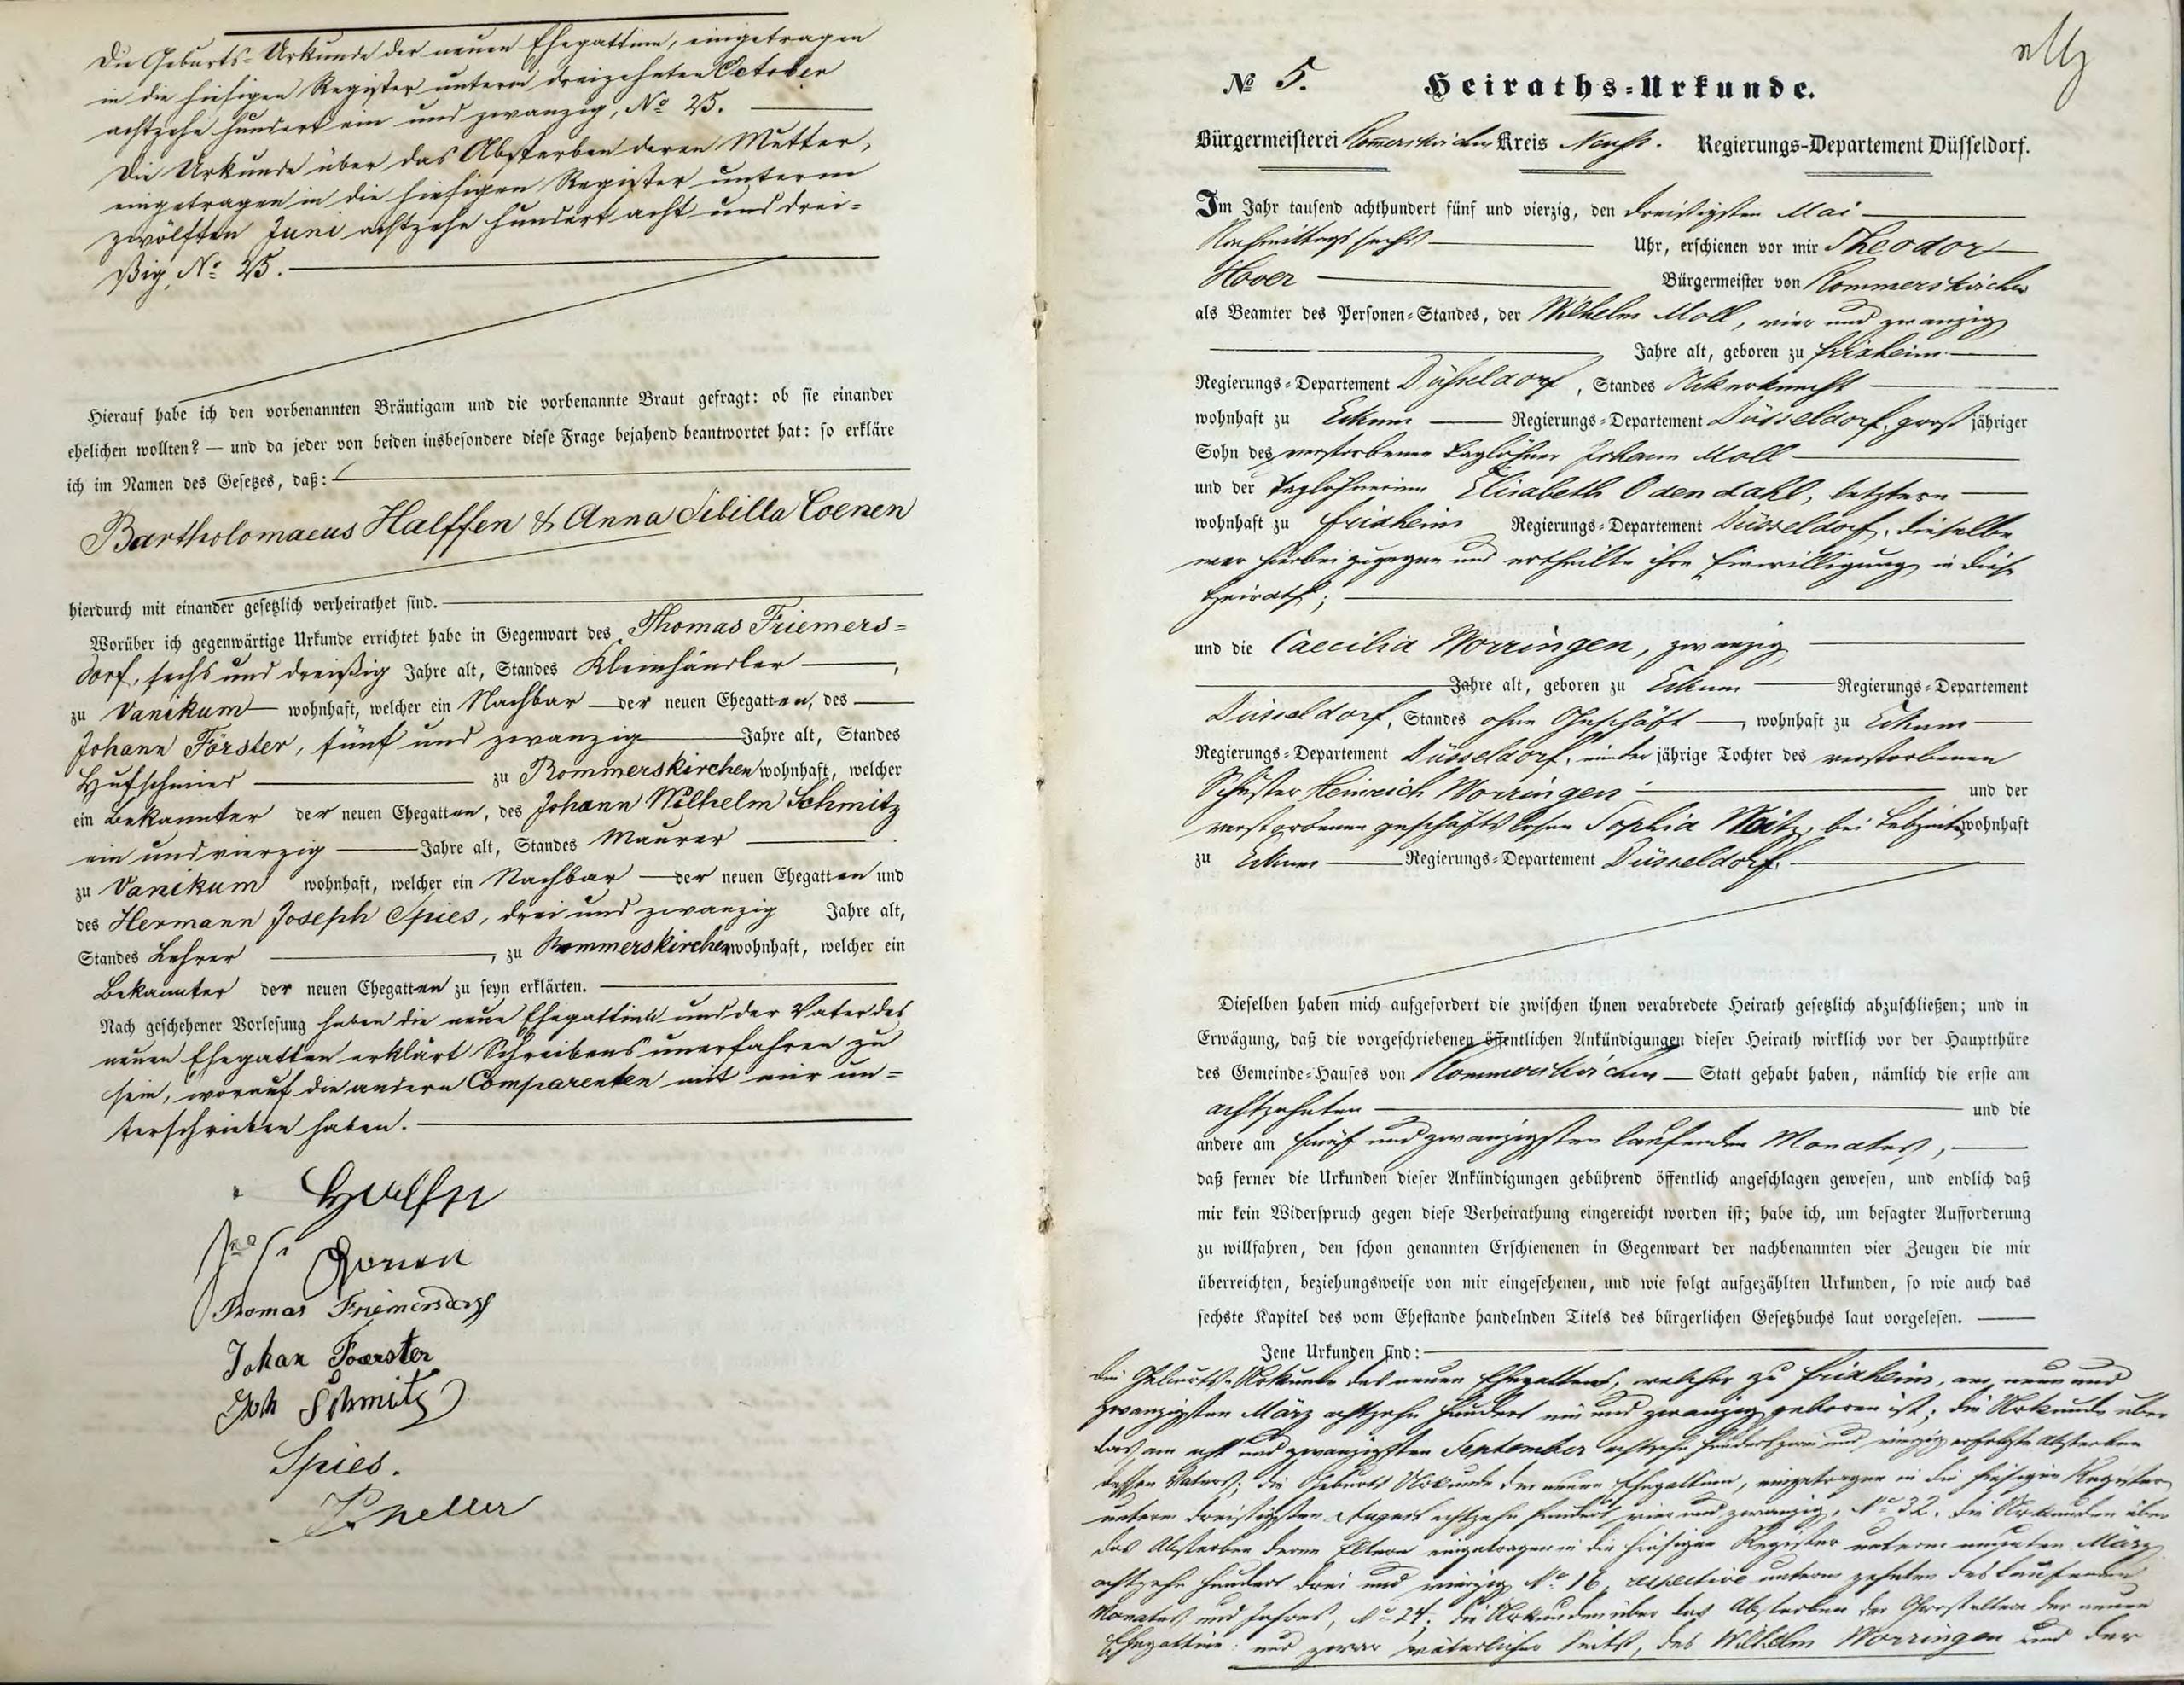 Die Geburts-Urkunde der neuen Ehegattinn, eingetragen
in die hiesigen Register unterm dreizehnten October
achtzehn hundert ein und zwanzig, No 25.
Die Urkunde über das Absterben deren Mutter,
eingetragen in die hiesigen Register unterm
zwölften Juni achtzehn hundert acht und drei-
ßig, No 25.
Hierauf habe ich den vorbenannten Bräutigam und die vorbenannte Braut gefragt: ob sie einander
ehelichen wollten? — und da jeder von beiden insbesondere diese Frage bejahend beantwortet hat: so erkläre
ich im Namen des Gesetzes, daß:
Bartholomaeus Halffen & Anna Sibilla Coenen
hierdurch mit einander gesetzlich verheirathet sind.
Worüber ich gegenwärtige Urkunde errichtet habe in Gegenwart des Thomas Friemers-
dorf, sechs und dreißig Jahre alt, Standes Kleinhändler,
zu Vanikum wohnhaft, welcher ein Nachbar der neuen Ehegatten, des
Johann Förster, fünf und zwanzig Jahre alt, Standes
Hufschmied zu Rommerskirchen wohnhaft, welcher
ein Bekannter der neuen Ehegatten, des Johann Wilhelm Schmitz
ein und vierzig Jahre alt, Standes Maurer
zu Vanikum wohnhaft, welcher ein Nachbar der neuen Ehegatten und
des Hermann Joseph Spies, drei und zwanzig Jahre alt,
Standes Lehrer, zu Rommerskirchen wohnhaft, welcher ein
Bekannter der neuen Ehegatten zu seyn erklärten.
Nach geschehener Vorlesung haben die neue Ehegattinn und der Vater des
neuen Ehegatten erklärt Schreibens unerfahren zu
sein, worauf die andern Comparenten mit mir un-
terschrieben haben.
Halffen
Coenen
Thomas Friemersdorf
Johan Foerster
Joh Schmitz
Spies.
No 5. Heiraths-Urkunde.
Bürgermeisterei Rommerskirchen Kreis Neuss. Regierungs-Departement Düsseldorf.
Im Jahr tausend achthundert fünf und vierzig, den dreißigsten Mai
Nachmittags sechs Uhr, erschienen vor mir Theodor
Hover Bürgermeister von Rommerskirchen
als Beamter des Personen-Standes, der Wilhelm Moll, vier und zwanzig
Jahre alt, geboren zu Frixheim
Regierungs-Departement Düsseldorf, Standes Ackerknecht
wohnhaft zu Eckum Regierungs-Departement Düsseldorf, groß jähriger
Sohn des verstorbenen Taglöhner Johann Moll
und der Taglöhnerinn Elisabeth Odendahl, letztere
wohnhaft zu Frixheim Regierungs-Departement Düsseldorf, dieselbe
war hierbei zugegen und ertheilte ihre Einwilligung in diese
Heirath;
und die Caecilia Worringen, zwanzig
Jahre alt, geboren zu Eckum Regierungs-Departement
Düsseldorf, Standes ohne Geschäft, wohnhaft zu Eckum
Regierungs-Departement Düsseldorf, minder jährige Tochter des verstorbenen
Schuster Heinrich Worringen und der
verstorbenen geschäftslosen Sophia bei Lebzeit wohnhaft
zu Eckum Regierungs-Departement Düsseldorf.
Dieselben haben mich aufgefordert die zwischen ihnen verabredete Heirath gesetzlich abzuschließen; und in
Erwägung, daß die vorgeschriebenen öffentlichen Ankündigungen dieser Heirath wirklich vor der Hauptthüre
des Gemeinde-Hauses von Rommerskirchen Statt gehabt haben, nämlich die erste am
achtzehnten und die
andere am fünf und zwanzigsten laufenden Monates,
daß ferner die Urkunden dieser Ankündigungen gebührend öffentlich angeschlagen gewesen, und endlich daß
mir kein Widerspruch gegen diese Verheirathung eingereicht worden ist; habe ich, um besagter Aufforderung
zu willfahren, den schon genannten Erschienenen in Gegenwart der nachbenannten vier Zeugen die mir
überreichten, beziehungsweise von mir eingesehenen, und wie folgt aufgezählten Urkunden, so wie auch das
sechste Kapitel des vom Ehestande handelnden Titels des bürgerlichen Gesetzbuchs laut vorgelesen.
Jene Urkunden sind:
die Geburts-Urkunde des neuen Ehegatten, welcher zu Frixheim, am neun und
zwanzigsten März achtzehn hundert ein und zwanzig geboren ist; die Urkunde über
das am acht und zwanzigsten September achtzehn hundert zwei und vierzig erfolgte Absterben
dessen Vaters; die Geburts Urkunde der neuen Ehegattinn, eingetragen in die hiesigen Register
unterm dreißigsten August achtzehn hundert vier und zwanzig, No 32. die Urkunden über
das Absterben deren Eltern eingetragen in die hiesigen Register unterm neunten März
achtzehn hundert drei und vierzig No 16, respective unterm zehnten des laufenden
Monates und Jahres, No 24. die Urkunden über das Absterben der Großeltern der neuen
Ehegattinn: und zwar väterlicher Seits, des Wilhelm Worringen und der